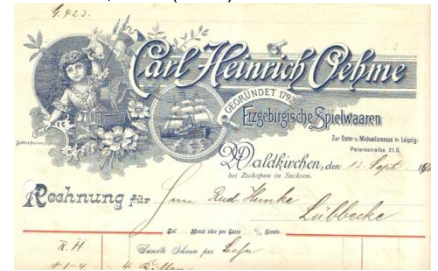 G. 923.
Carl Heinrich Oehme
GEGRÜNDET 1792
Erzgebirgische Spielwaaren
Zur Oster- u. Michaelismesse in Leipzig:
Petersstraße
Waldkirchen, den 13. Sept.
bei Zschopau in Sachsen.
Rechnung für Herrn Rud.
Lübbecke
Ziel Monat oder per Cassa % Sconto.
R. H.
Sandte Ihnen per